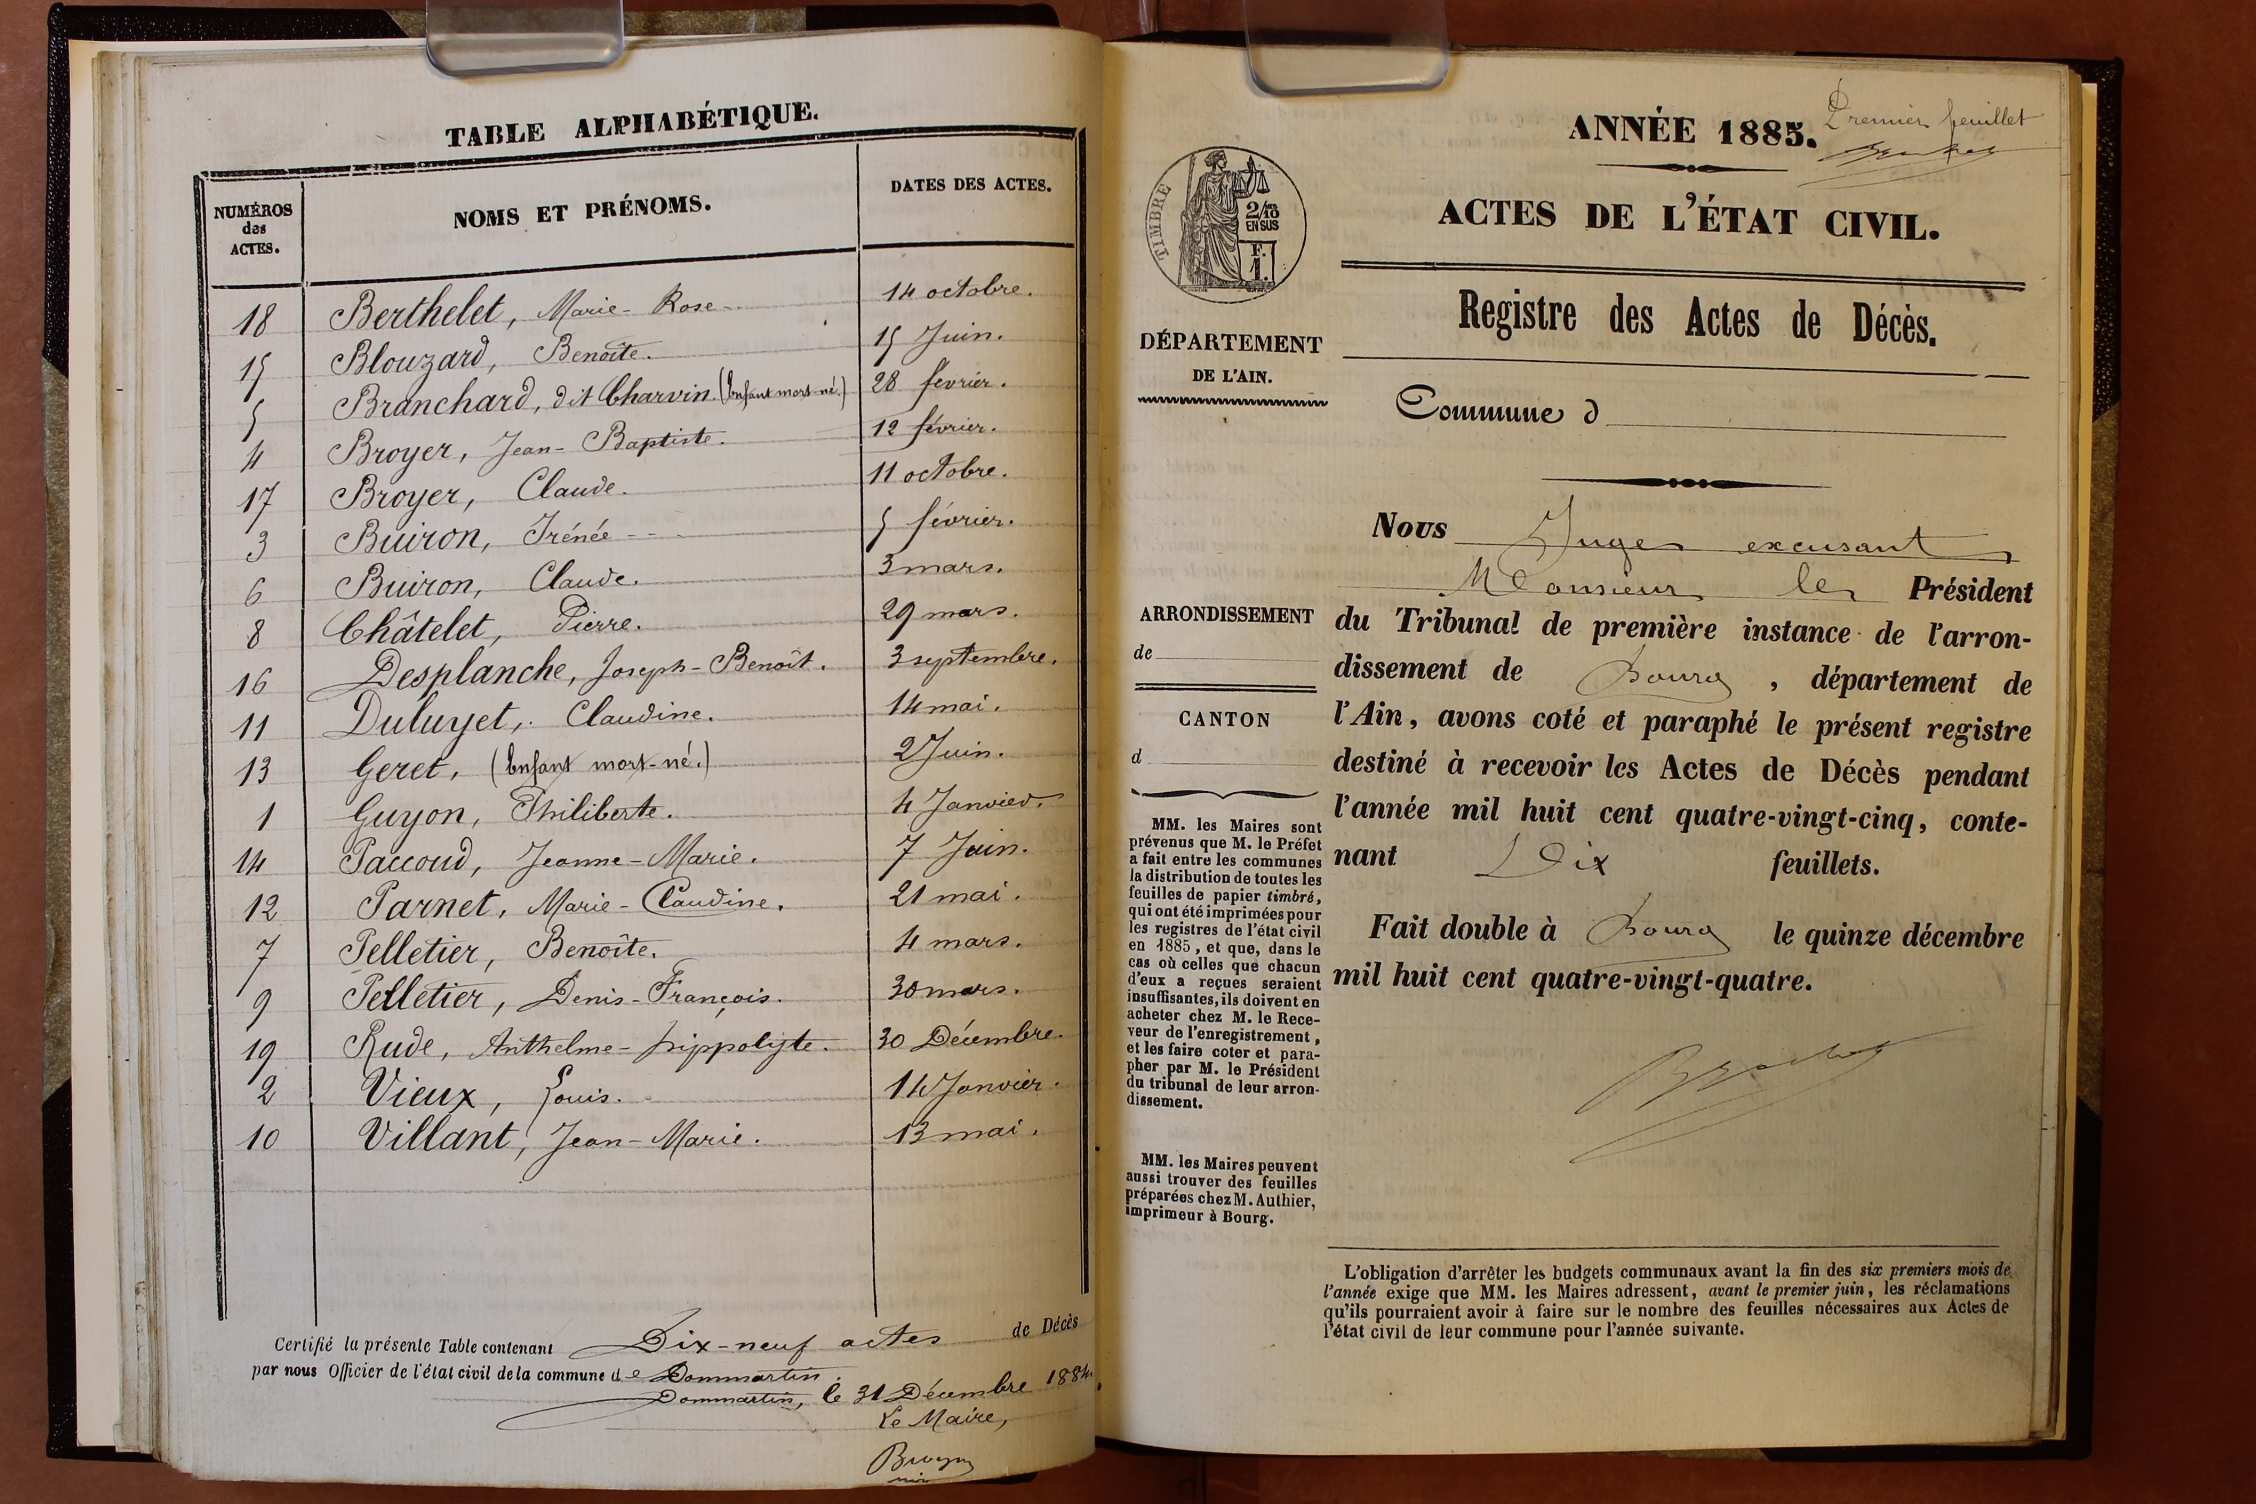 TABLE ALPHABÉTIQUE.
NUMÉROS des ACTES.
NOMS ET PRÉNOMS.
DATES DES ACTES.
18 Berthelet, Marie-Rose 14 octobre.
15 Blouzard, Benoîte. 15 Juin.
5 Branchard, dit Charvin (Enfant mort-né.) 28 février.
4 Broyer, Jean-Baptiste. 12 février.
17 Broyer, Claude. 11 octobre.
3 Buiron, Irénée 5 février.
6 Buiron, Claude. 3 mars.
8 Châtelet, Pierre. 29 mars.
16 Desplanche, Joseph-Benoît. 3 septembre.
11 Duluyet, Claudine. 14 mai.
13 Geret, (Enfant mort-né.) 2 Juin.
1 Guyon, Philiberte. 4 Janvier.
14 Paccoud, Jeanne-Marie. 7 Juin.
12 Parnet, Marie-Claudine. 21 mai.
7 Pelletier, Benoîte. 4 mars.
9 Pelletier, Denis-François. 30 mars.
19 Rude, Anthelme-hippolyte. 30 Décembre.
2 Vieux, Louis. 14 Janvier.
10 Villant, Jean-Marie. 13 mai.
Certifié la présente Table contenant Dix-neuf actes de Décès
par nous Officier de l'état civil de la commune de Dommartin.
Dommartin, le 31 Décembre 1884.
Le Maire,
Premier feuillet
ANNÉE 1885.
ACTES DE L'ÉTAT CIVIL.
TIMBRE
2/10 EN SUS
F. 1.
Registre des Actes de Décès.
DÉPARTEMENT
DE L'AIN.
Commune d
Nous Juge excusant
Monsieur le Président
du Tribunal de première instance de l'arron-
dissement de Bourg, département de
l'Ain, avons coté et paraphé le présent registre
destiné à recevoir les Actes de Décès pendant
l'année mil huit cent quatre-vingt-cinq, conte-
nant Dix feuillets.
Fait double à Bourg le quinze décembre
mil huit cent quatre-vingt-quatre.
ARRONDISSEMENT
de
CANTON
d
MM. les Maires sont
prévenus que M. le Préfet
a fait entre les communes
la distribution de toutes les
feuilles de papier timbré,
qui ont été imprimées pour
les registres de l'état civil
en 1885, et que, dans le
cas où celles que chacun
d'eux a reçues seraient
insuffisantes, ils doivent en
acheter chez M. le Rece-
veur de l'enregistrement,
et les faire coter et para-
pher par M. le Président
du tribunal de leur arron-
dissement.
MM. les Maires peuvent
aussi trouver des feuilles
préparées chez M. Authier,
imprimeur à Bourg.
L'obligation d'arrêter les budgets communaux avant la fin des six premiers mois de
l'année exige que MM. les Maires adressent, avant le premier juin, les réclamations
qu'ils pourraient avoir à faire sur le nombre des feuilles nécessaires aux Actes de
l'état civil de leur commune pour l'année suivante.